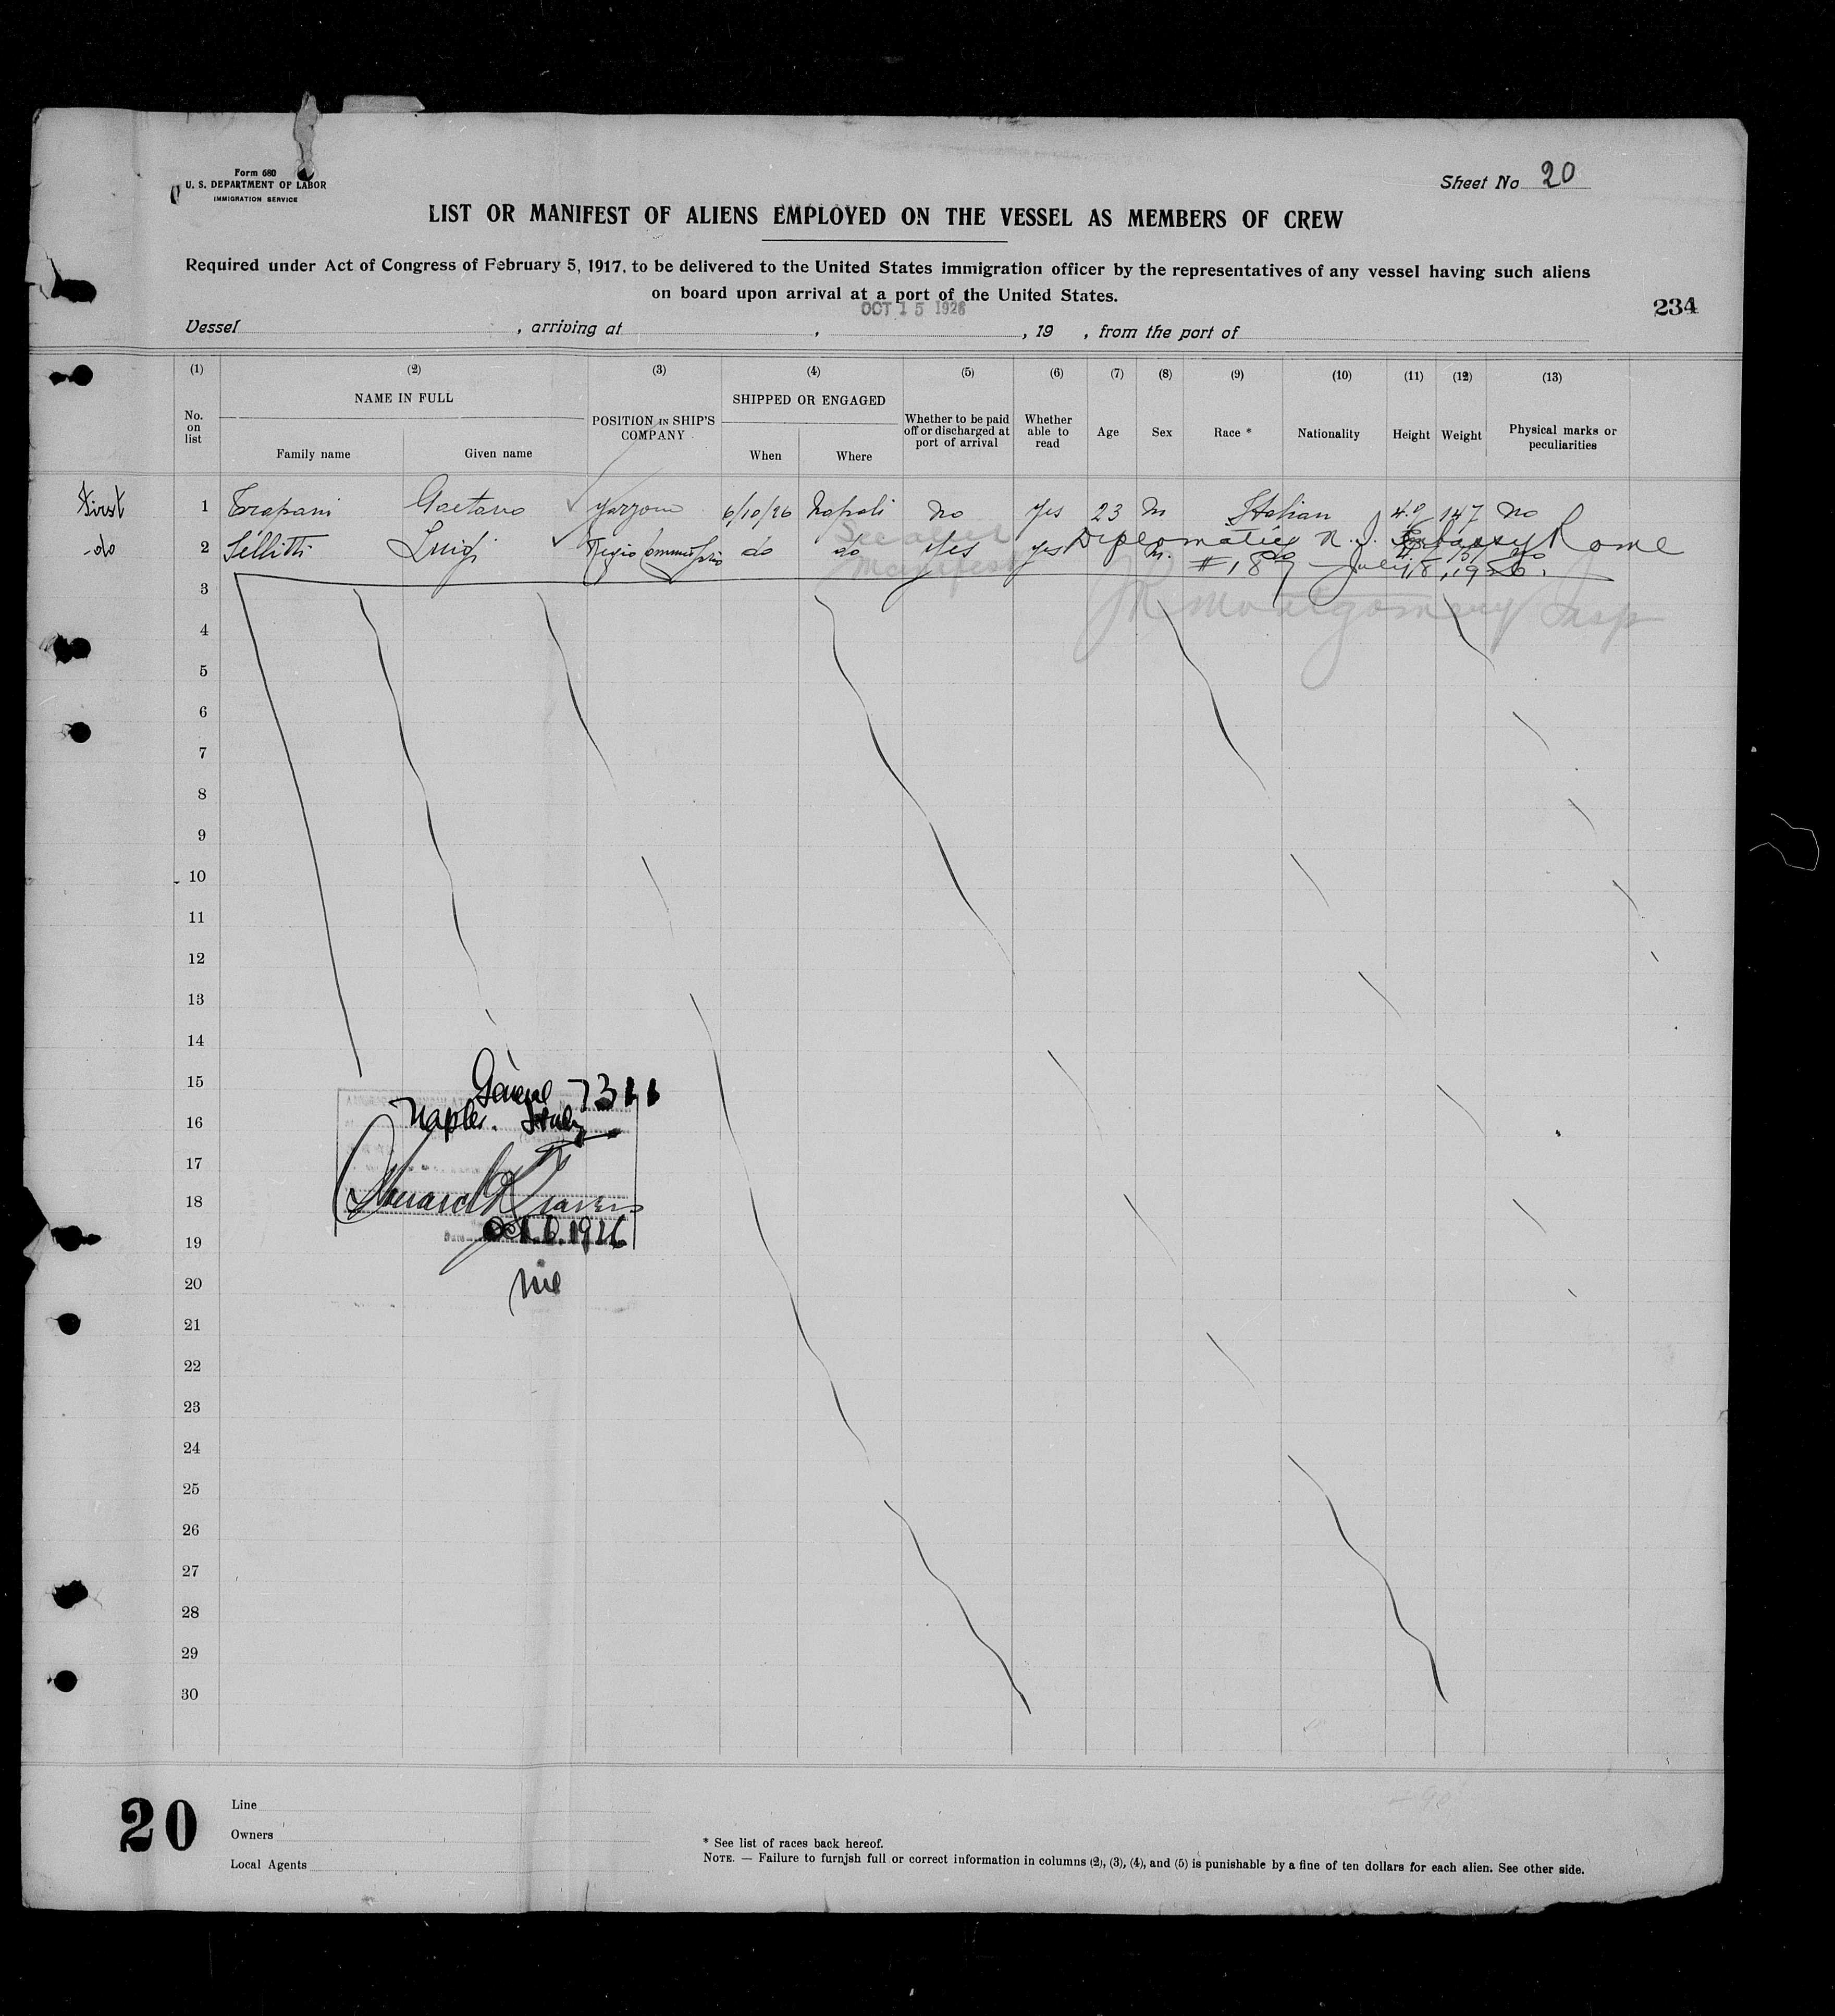 Form 680
U. S. DEPARTMENT OF LABOR
IMMIGRATION SERVICE
Sheet No 20
LIST OR MANIFEST OF ALIENS EMPLOYED ON THE VESSEL AS MEMBERS OF CREW
Required under Act of Congress of February 5, 1917, to be delivered to the United States immigration officer by the representatives of any vessel having such aliens
on board upon arrival at a port of the United States.
OCT 15 1926
234
Vessel , arriving at , , 19 , from the port of
(1) (2) (3) (4) (5) (6) (7) (8) (9) (10) (11) (12) (13)
No. on list NAME IN FULL Family name Given name POSITION IN SHIP'S COMPANY SHIPPED OR ENGAGED When Where Whether to be paid off or discharged at port of arrival Whether able to read Age Sex Race * Nationality Height Weight Physical marks or peculiarities
First 1 Trapani Gaetano 6/10/26 Napoli no yes 23 m Italian 147 no
do 2 Sellitti Luigi Regio do do yes yes m.
See alien manifest
Diplomatic Embassy Rome
# 189 July 18, 1926.
JR Montgomery Insp
3
4
5
6
7
8
9
10
11
12
13
14
15 7311
16 Naples. Italy
17
18
19 1926
20 nil
21
22
23
24
25
26
27
28
29
30
20
Line
Owners
Local Agents
* See list of races back hereof.
NOTE. — Failure to furnish full or correct information in columns (2), (3), (4), and (5) is punishable by a fine of ten dollars for each alien. See other side.